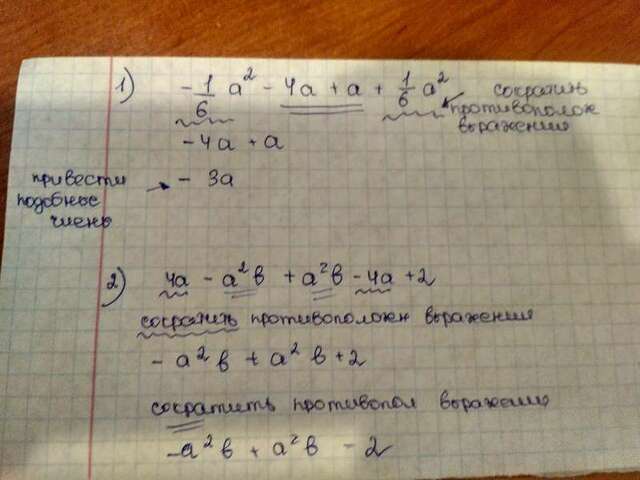 1) -1/6 a² - 4a + a + 1/6 a² сократить
противополож
выражения
-4a + a
привести
подобные
члены
- 3a
2) 4a - a²b + a²b - 4a + 2
сократить противоположн выражения
- a²b + a²b + 2
сократить противопол выражения
-a²b + a²b - 2